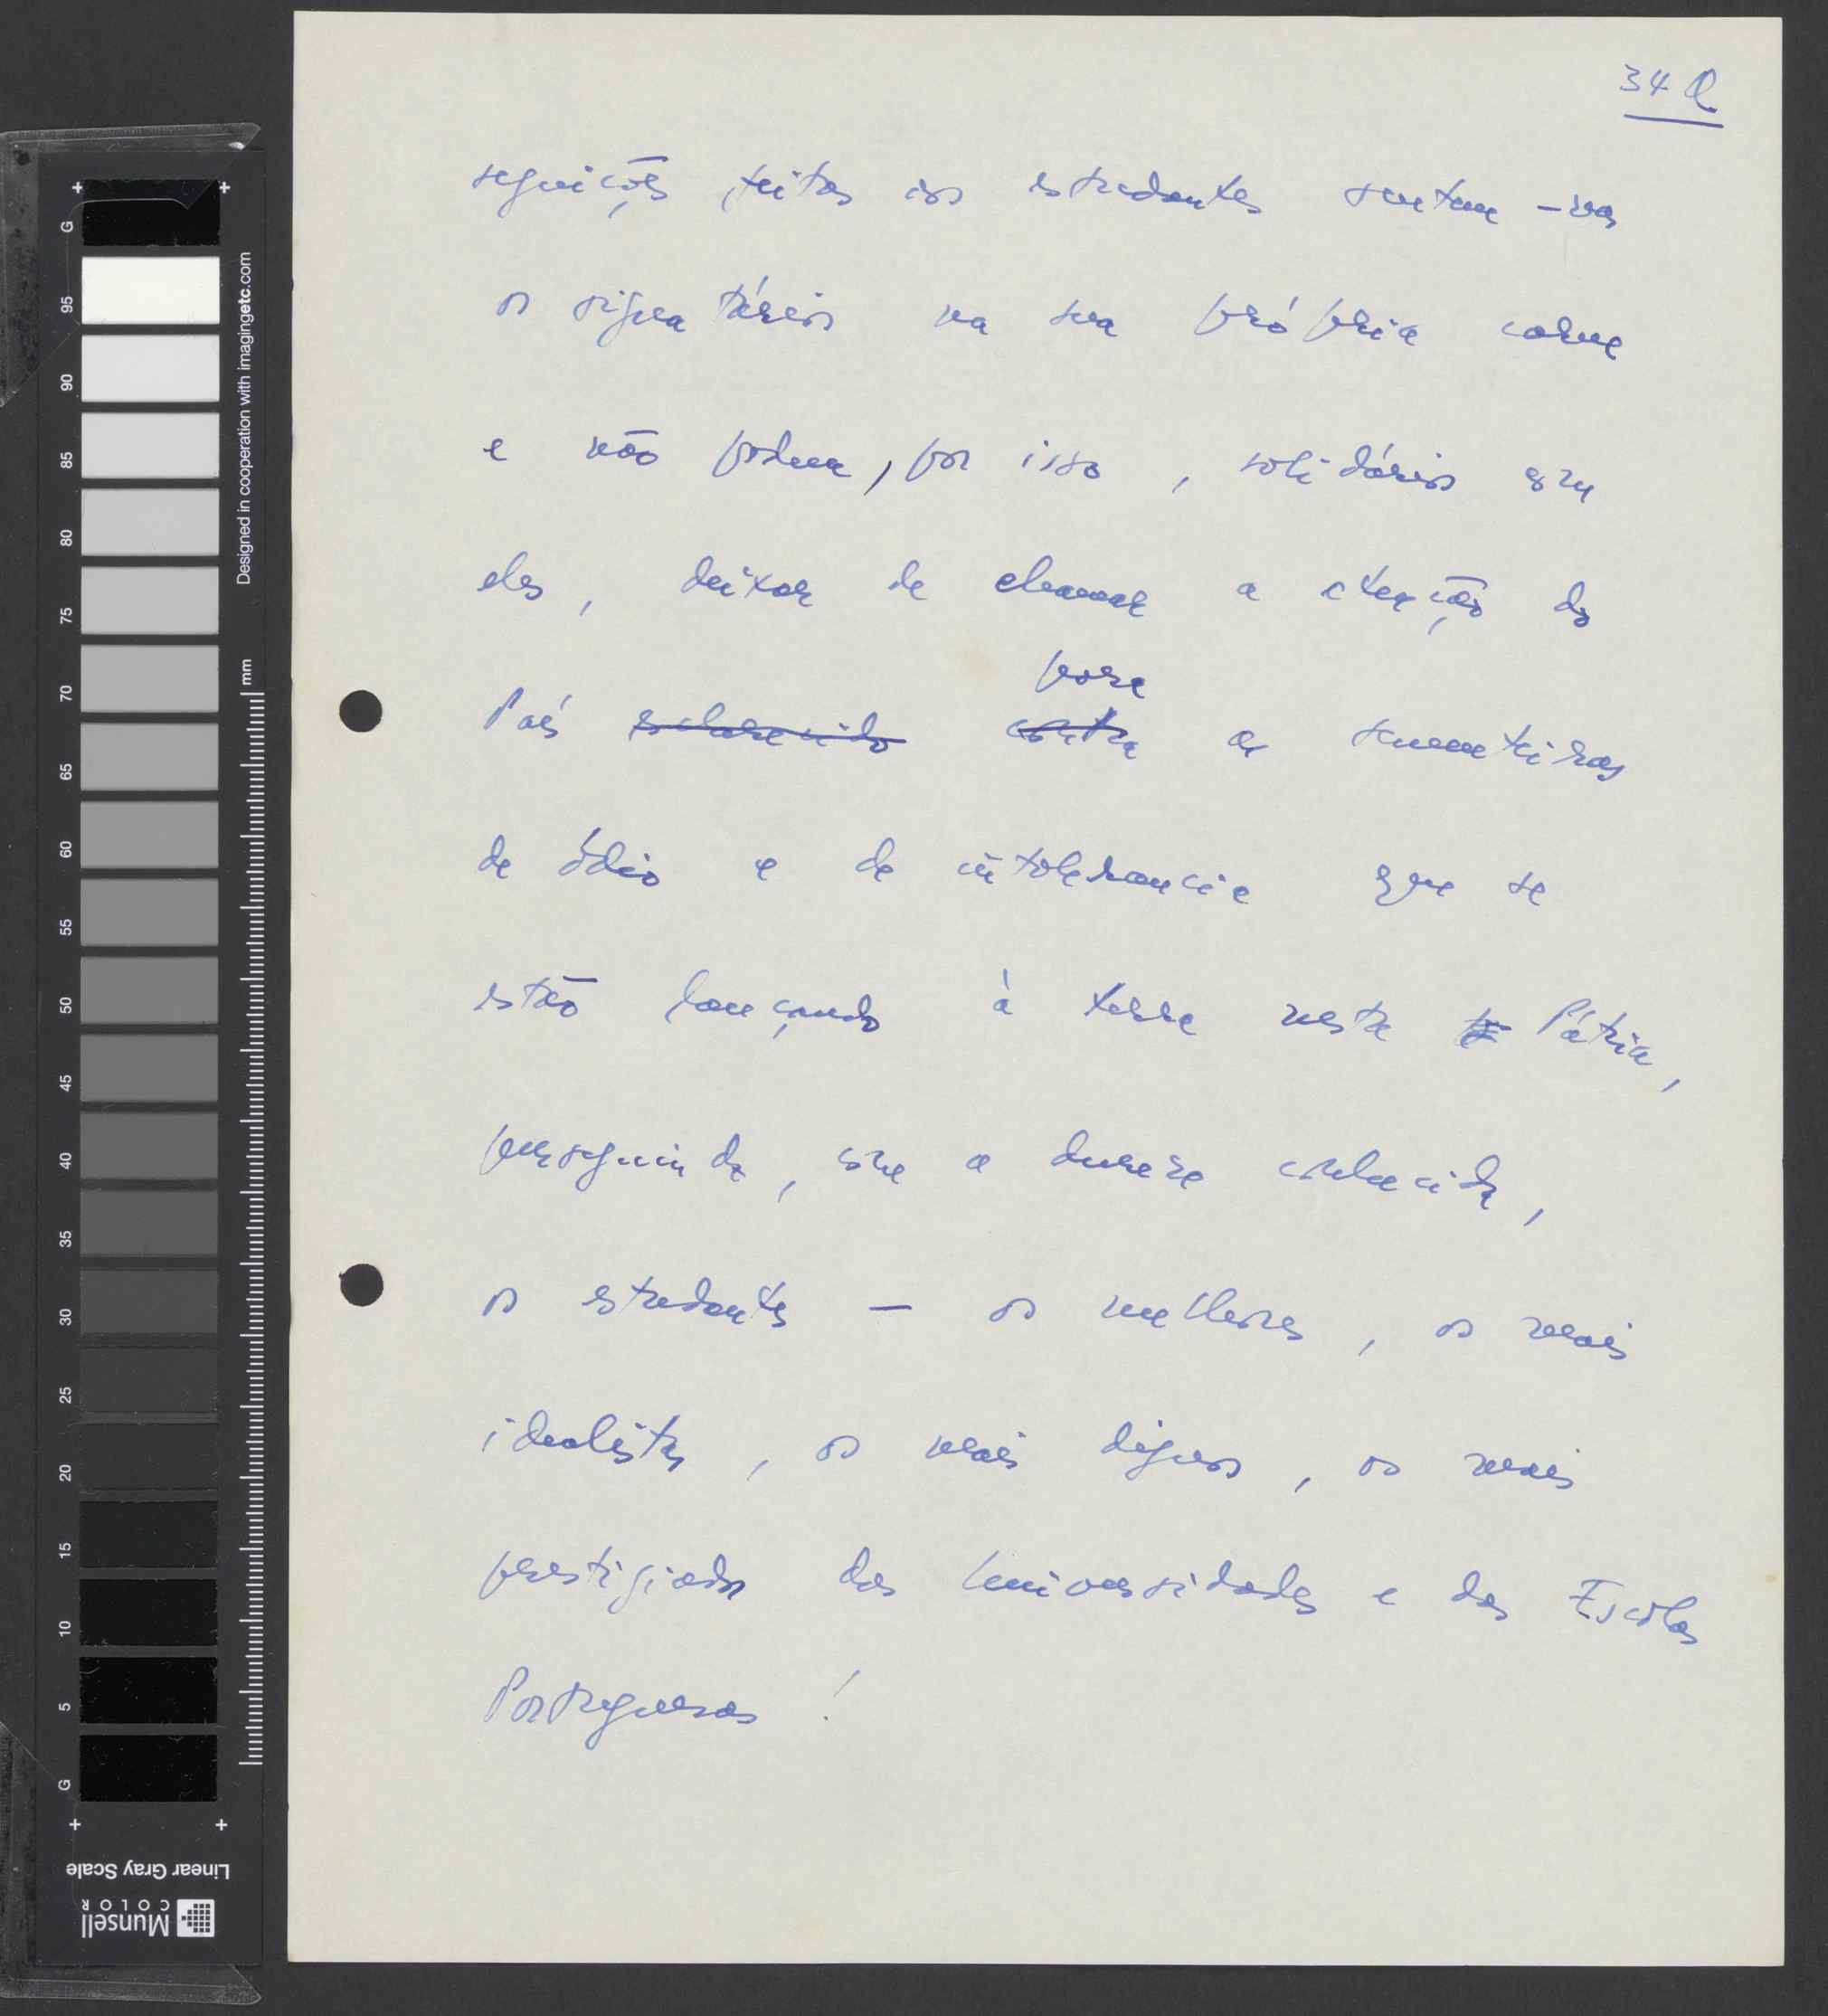 34 Q
seguições feitas aos estudantes sentem-nas
os signatários na sua própria carne
e não podem, por isso, solidários com
eles, deixar de chamar a atenção do
para
País esclarecido contra as sementeiras
de ódio e de intolerancia que se
estão lançando à terra nesta Pátria,
perseguindo, com a dureza conhecida,
os estudantes — os melhores, os mais
idealistas, os mais dignos, os mais
prestigiados das Universidades e das Escolas
Portuguesas!
G
95
90
85
80
75
70
65
60
55
50
45
40
35
30
25
20
15
10
5
G
Designed in cooperation with imagingetc.com
mm
Linear Gray Scale
Munsell
COLOR